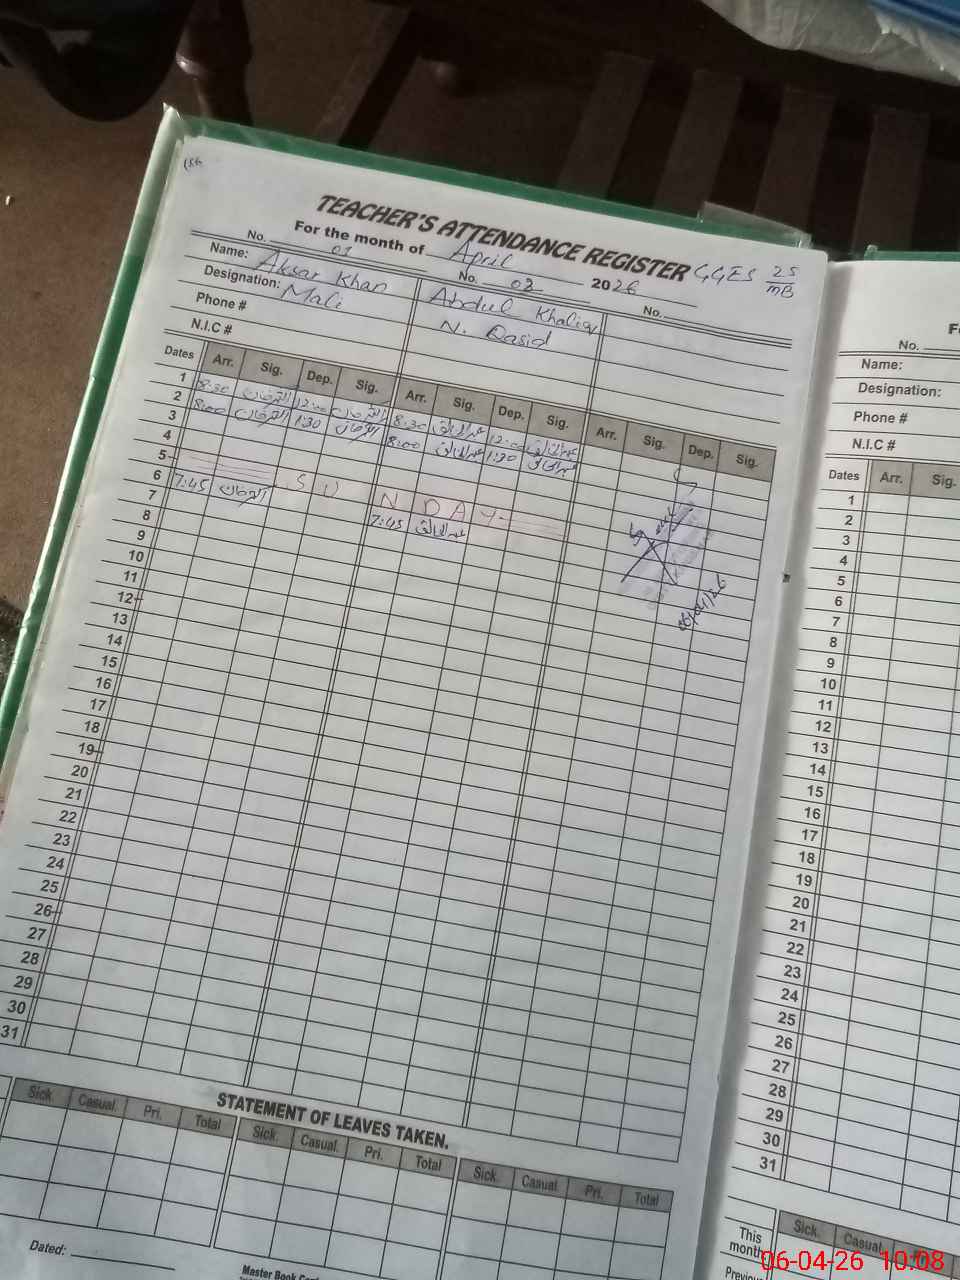 TEACHER'S ATTENDANCE REGISTER GGES 25/MB
For the month of April 2026
No. 01 No. 02 No.
Name: Aksar Khan Abdul Khaliq
Designation: Mali N. Qasid
Phone #
N.I.C #
Dates Arr. Sig. Dep. Sig. Arr. Sig. Dep. Sig. Arr. Sig. Dep. Sig.
1 8:30 12:00 8:30 عبدالخالق 12:00 عبدالخالق
2 8:00 1:30 8:00 عبدالخالق 1:30 عبدالخالق
3
4
5 SUNDAY
6 7:45 7:45 عبدالخالق
7
8
9
10
11
12
13
14
15
16
17
18
19
20
21
22
23
24
25
26
27
28
29
30
31
06/04/26
STATEMENT OF LEAVES TAKEN.
Sick. Casual. Pri. Total Sick. Casual. Pri. Total Sick. Casual. Pri. Total
Dated:
Master Book
No.
Name:
Designation:
Phone #
N.I.C #
Dates Arr. Sig.
1
2
3
4
5
6
7
8
9
10
11
12
13
14
15
16
17
18
19
20
21
22
23
24
25
26
27
28
29
30
31
Sick. Casual.
This month
06-04-26 10:08